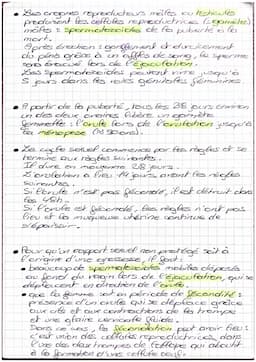 • Les organes reproducteurs mâles ou testicules
produisent les cellules reproductrices (= gamètes)
mâles : spermatozoïdes de la puberté à la
mort.
Après érection : gonflement et durcissement
du pénis grâce à un afflux de sang, le sperme
sera évacué lors de l'éjaculation.
Les spermatozoïdes peuvent vivre jusqu'à
5 jours dans les voies génitales féminines.
• A partir de la puberté, tous les 28 jours environ
un des deux ovaires libère un gamète
femelle : l'ovule lors de l'ovulation jusqu'à
la ménopause (≈ 50 ans).
• Le cycle sexuel commence par les règles et se
termine aux règles suivantes.
Il dure en moyenne 28 jours.
L'ovulation a lieu 14 jours avant les règles
suivantes.
Si l'ovule n'est pas fécondé, il est détruit dans
les 48h.
Si l'ovule est fécondé, les règles n'ont pas
lieu et la muqueuse utérine continue de
s'épaissir.
• Pour qu'un rapport sexuel non protégé soit à
l'origine d'une grossesse, il faut :
• beaucoup de spermatozoïdes mobiles déposés
au fond du vagin lors de l'éjaculation, qui se
déplacent en direction de l'ovule.
• que la femme soit en période de fécondité :
présence d'un ovule qui se déplace grâce
aux cils et aux contractions de la trompe
et une glaire cervicale filante.
Dans ce cas, la fécondation peut avoir lieu :
c'est union des cellules reproductrices, dans
l'une des deux trompes de Fallope qui aboutit
à la formation d'une cellule œuf.